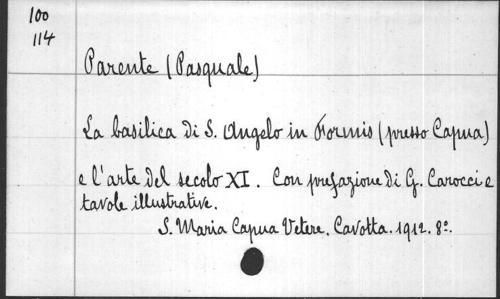 100
114
Parente (Pasquale)
La basilica di S. Angelo in Formis (presso Capua)
e l'arte del secolo XI. Con prefazione di G. Carocci e
tavole illustrative.
S. Maria Capua Vetere. Cavotta. 1912. 8º.